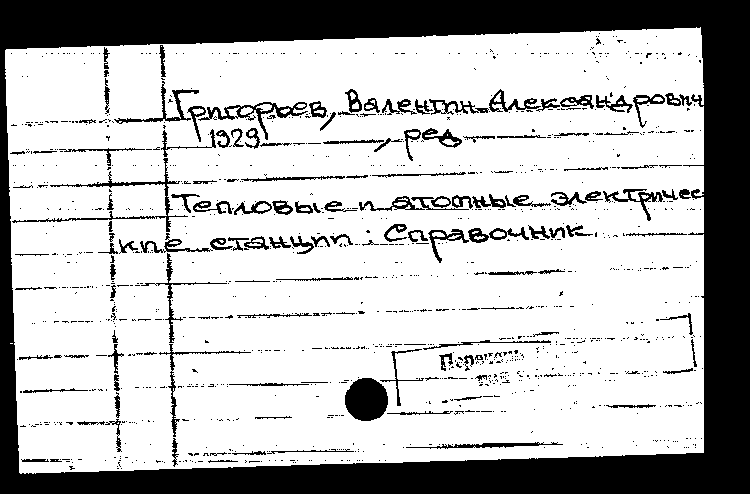 Григорьев, Валентин Александрович
1929 , ред.
Тепловые и атомные электричес
кие станции : Справочник.